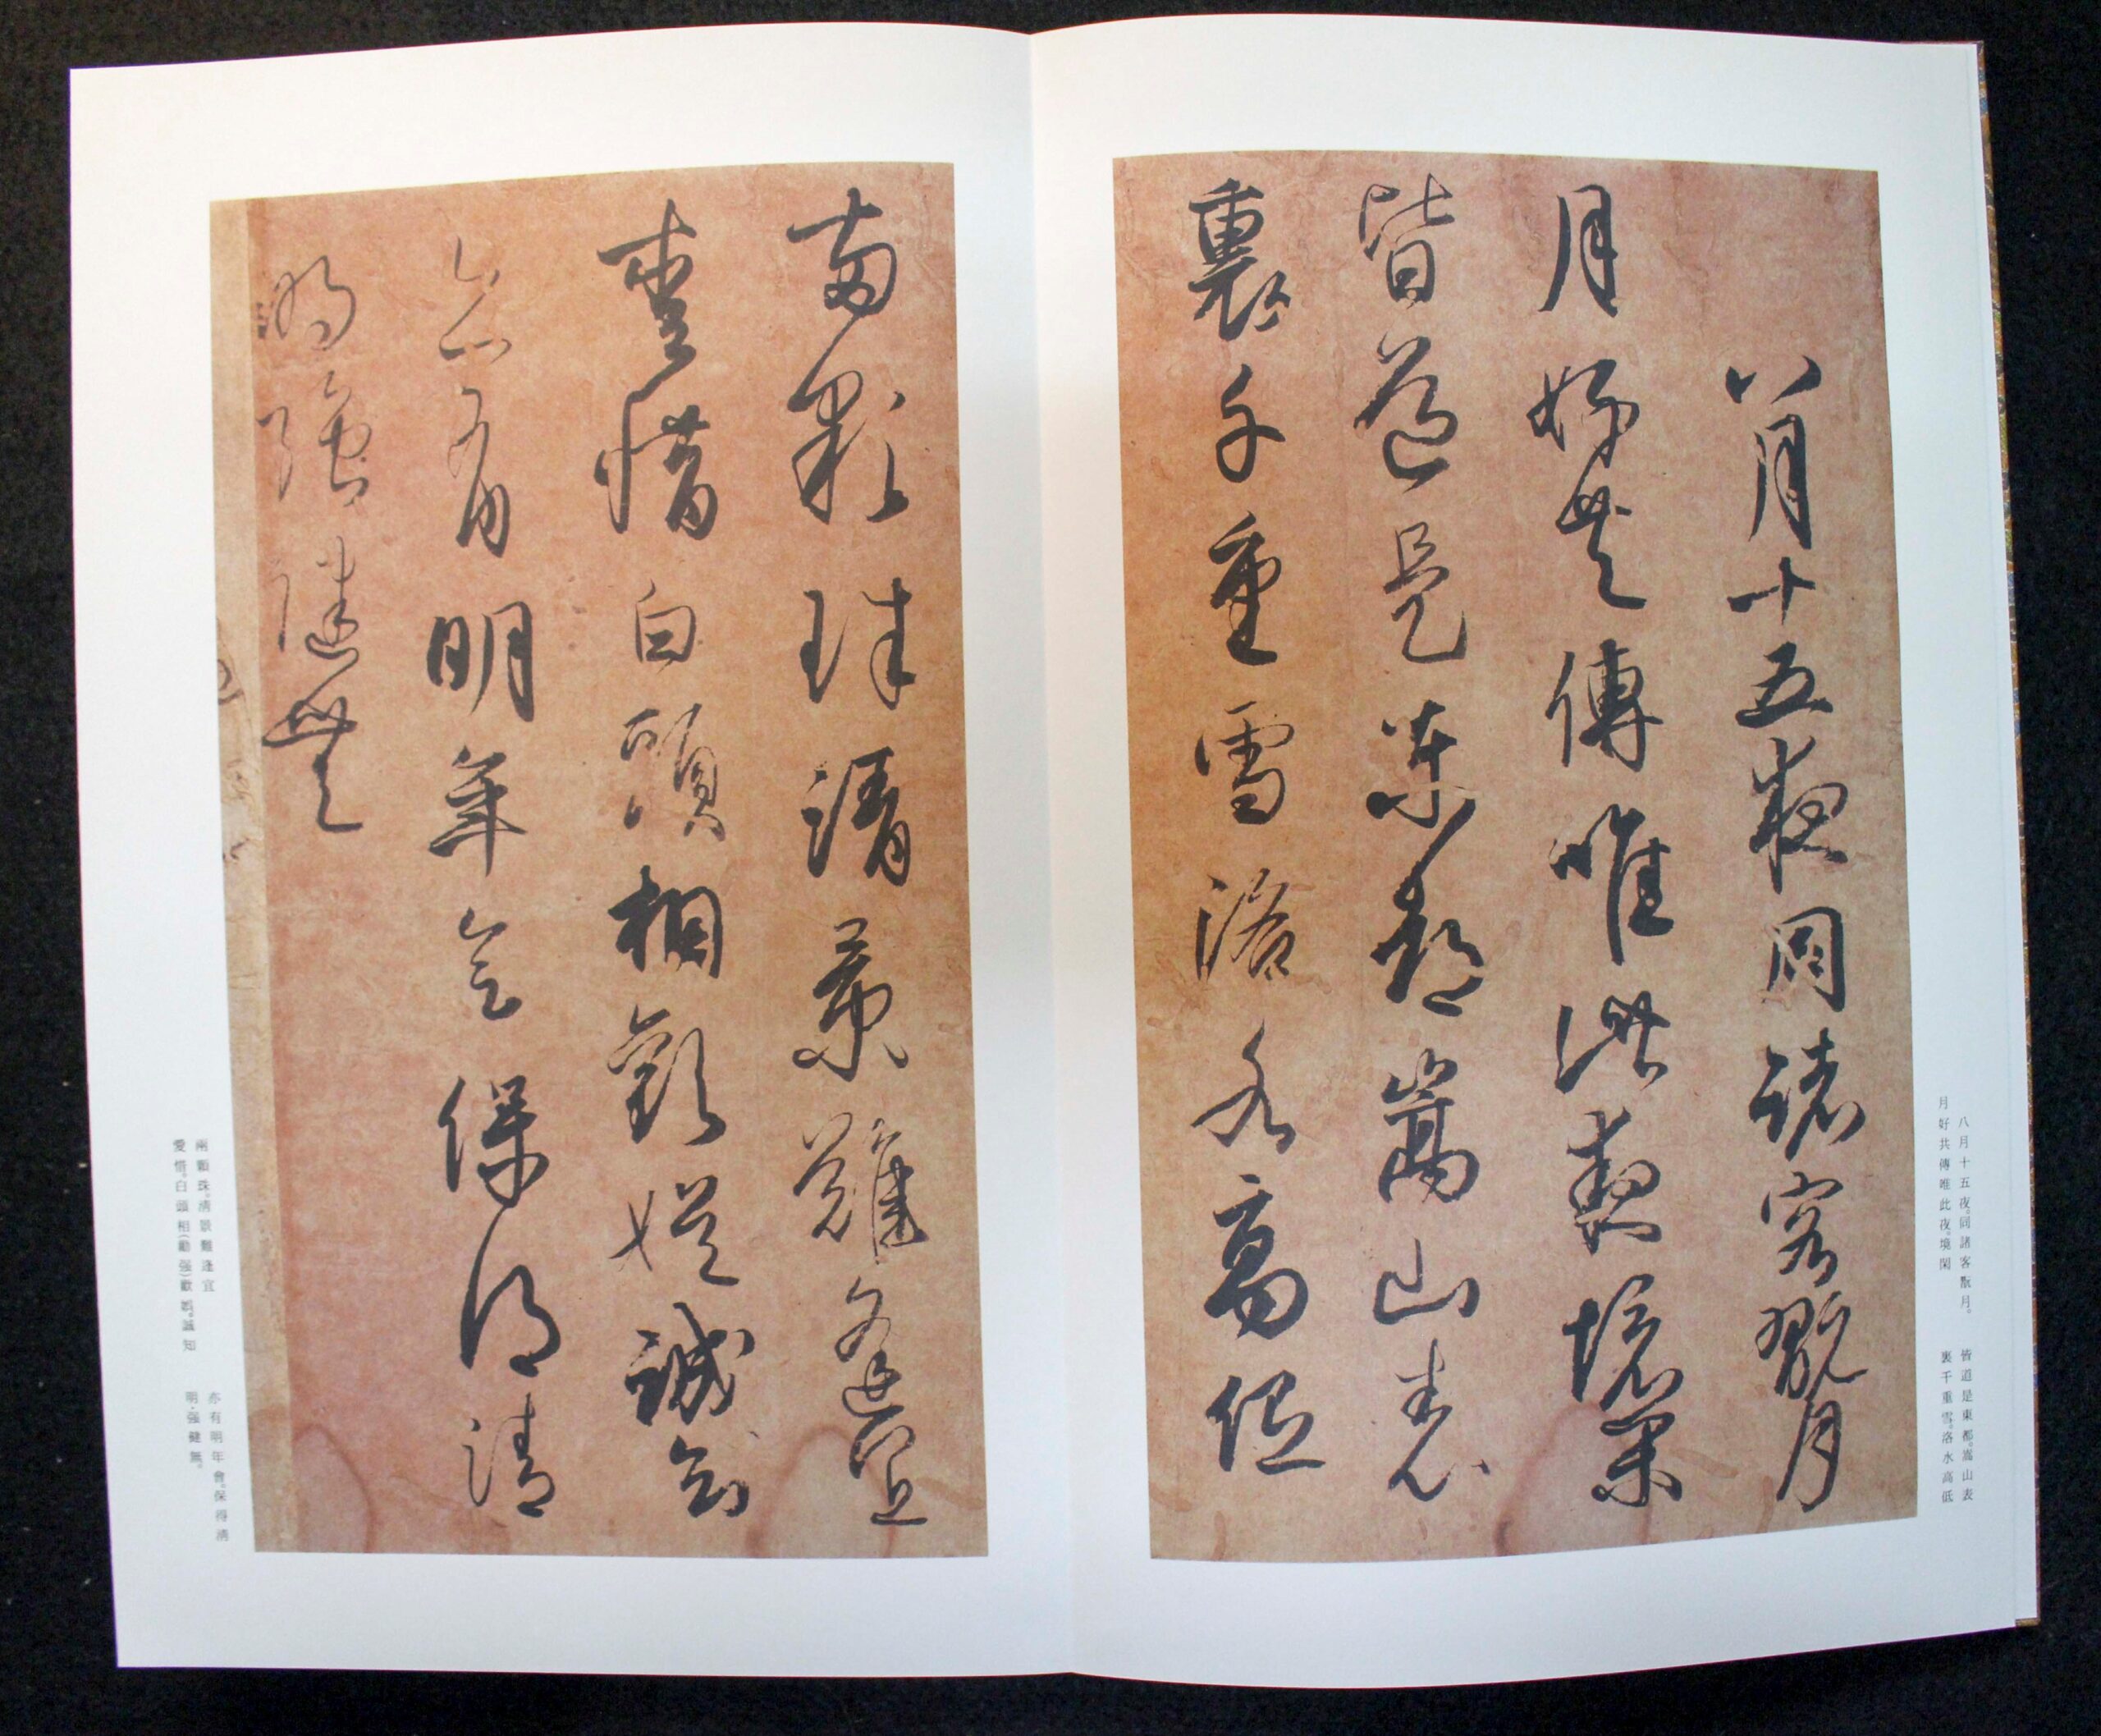 八月十五夜同諸客翫月
月好共傳唯此夜境閑
皆道是東都嵩山表
裏千重雪洛水高低
兩顆珠清景難逢宜
愛惜白頭相歡娛誠知
亦有明年會保得清
明強健無
八月十五夜。同諸客翫月。
月好共傳唯此夜。境閑
皆道是東都。嵩山表
裏千重雪。洛水高低
兩顆珠。清景難逢宜
愛惜。白頭相(勸强)歡娛。誠知
亦有明年會。保得清
明·强健無。